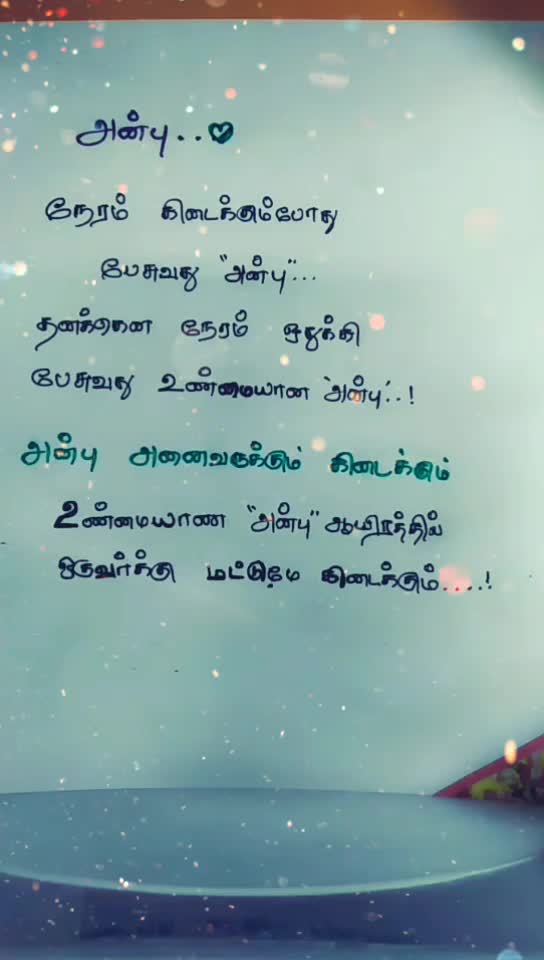 அன்பு..♡
நேரம் கிடைக்கும்போது
பேசுவது "அன்பு"...
தனக்கென நேரம் ஒதுக்கி
பேசுவது உண்மையான 'அன்பு'..!
அன்பு அனைவருக்கும் கிடைக்கும்
உண்மையாண "அன்பு" ஆயிரத்தில்
ஒருவர்க்கு மட்டுமே கிடைக்கும்....!